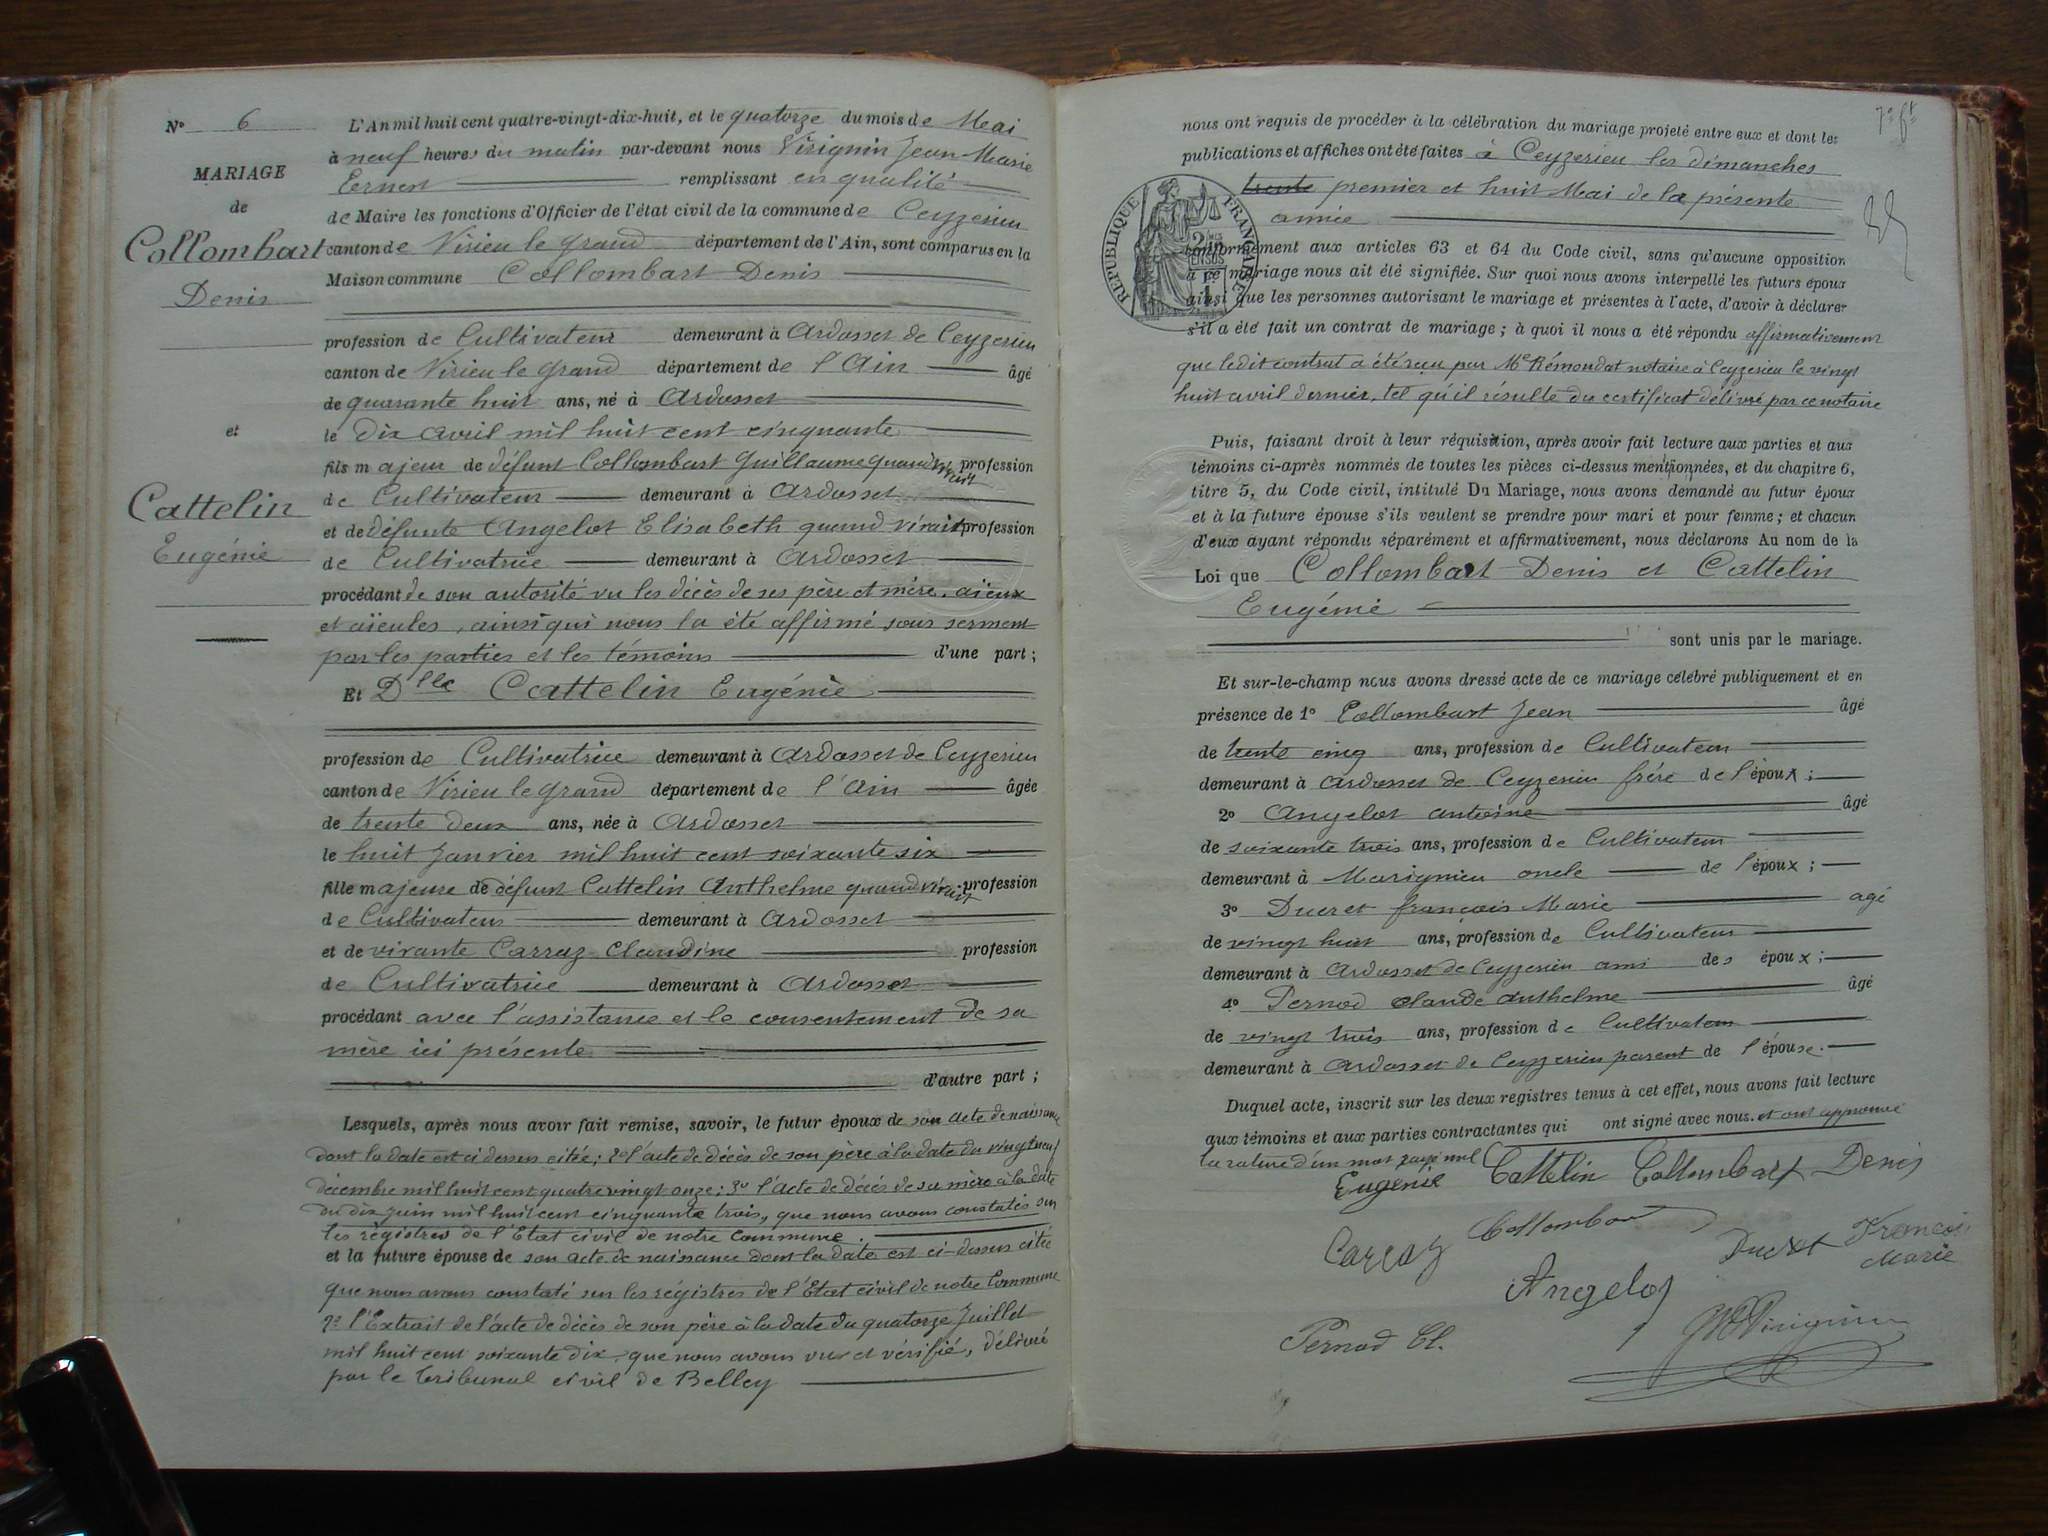 N° 6
MARIAGE
de
Collombart
Denis
et
Cattelin
Eugénie
L'An mil huit cent quatre-vingt-dix-huit, et le quatorze du mois de Mai
à neuf heures du matin par-devant nous Virignin Jean-Marie
Ernest remplissant en qualité
de Maire les fonctions d'Officier de l'état civil de la commune de Ceyzerieu
canton de Virieu le grand département de l'Ain, sont comparus en la
Maison commune Collombart Denis
profession de Cultivateur demeurant à Ardosset de Ceyzerieu
canton de Virieu le grand département de l'Ain âgé
de quarante huit ans, né à Ardosset
le dix avril mil huit cent cinquante
fils majeur de défunt Collombart Guillaume quand vivait profession
de Cultivateur demeurant à Ardosset
et de défunte Angelot Elisabeth quand vivait profession
de Cultivatrice demeurant à Ardosset
procédant de son autorité vu les décès de ses père et mère, aïeux
et aïeules, ainsi qui nous la été affirmé sous serment
par les parties et les témoins d'une part ;
Et Dlle Cattelin Eugénie
profession de Cultivatrice demeurant à Ardosset de Ceyzerieu
canton de Virieu le grand département de l'Ain âgée
de trente deux ans, née à Ardosset
le huit Janvier mil huit cent soixante six
fille majeure de défunt Cattelin Anthelme quand vivait profession
de Cultivateur demeurant à Ardosset
et de vivante Carraz Claudine profession
de Cultivatrice demeurant à Ardosset
procédant avec l'assistance et le consentement de sa
mère ici présente
d'autre part ;
Lesquels, après nous avoir fait remise, savoir, le futur époux de son acte de naissance
dont la date est ci dessus citée; 2° l'acte de décès de son père à la date du vingt neuf
décembre mil huit cent quatre vingt onze; 3° l'acte de décès de sa mère à la date
du dix juin mil huit cent cinquante trois, que nous avons constatés sur
les régistres de l'Etat civil de notre Commune.
et la future épouse de son acte de naissance dont la date est ci-dessus citée
que nous avons constaté sur les régistres de l'Etat civil de notre Commune
2° l'Extrait de l'acte de décès de son père à la date du quatorze Juillet
mil huit cent soixante dix, que nous avons vu et vérifié, délivré
par le tribunal civil de Belley
7e ft
nous ont requis de procéder à la célébration du mariage projeté entre eux et dont les
publications et affiches ont été faites à Ceyzerieu les dimanches
trente premier et huit Mai de la présente
année
RÉPUBLIQUE FRANÇAISE
conformément aux articles 63 et 64 du Code civil, sans qu'aucune opposition
à ce mariage nous ait été signifiée. Sur quoi nous avons interpellé les futurs époux
ainsi que les personnes autorisant le mariage et présentes à l'acte, d'avoir à déclarer
s'il a été fait un contrat de mariage ; à quoi il nous a été répondu affirmativement
que ledit contrat a été reçu par Me Rémondat notaire à Ceyzerieu le vingt
huit avril dernier, tel qu'il résulte du certificat délivré par ce notaire
Puis, faisant droit à leur réquisition, après avoir fait lecture aux parties et aux
témoins ci-après nommés de toutes les pièces ci-dessus mentionnées, et du chapitre 6,
titre 5, du Code civil, intitulé Du Mariage, nous avons demandé au futur époux
et à la future épouse s'ils veulent se prendre pour mari et pour femme ; et chacun
d'eux ayant répondu séparément et affirmativement, nous déclarons Au nom de la
Loi que Collombart Denis et Cattelin
Eugénie
sont unis par le mariage.
Et sur-le-champ nous avons dressé acte de ce mariage célébré publiquement et en
présence de 1° Collombart Jean âgé
de trente cinq ans, profession de Cultivateur
demeurant à Ardosset de Ceyzerieu frère de l'époux ;
2° Angelot antoine âgé
de soixante trois ans, profession de Cultivateur
demeurant à Marignieu oncle de l'époux ;
3° Ducret françois Marie agé
de vingt huit ans, profession de Cultivateur
demeurant à Ardosset de Ceyzerieu ami des époux ;
4° Pernod Claude Anthelme âgé
de vingt trois ans, profession de Cultivateur
demeurant à Ardosset de Ceyzerieu parent de l'épouse.
Duquel acte, inscrit sur les deux registres tenus à cet effet, nous avons fait lecture
aux témoins et aux parties contractantes qui ont signé avec nous. et ont approuvé
la rature d'un mot rayé nul
Eugénie Cattelin Collombart Denis
Carraz Collombart Ducret François
Marie
Angelot
Pernod Cl. Virignin